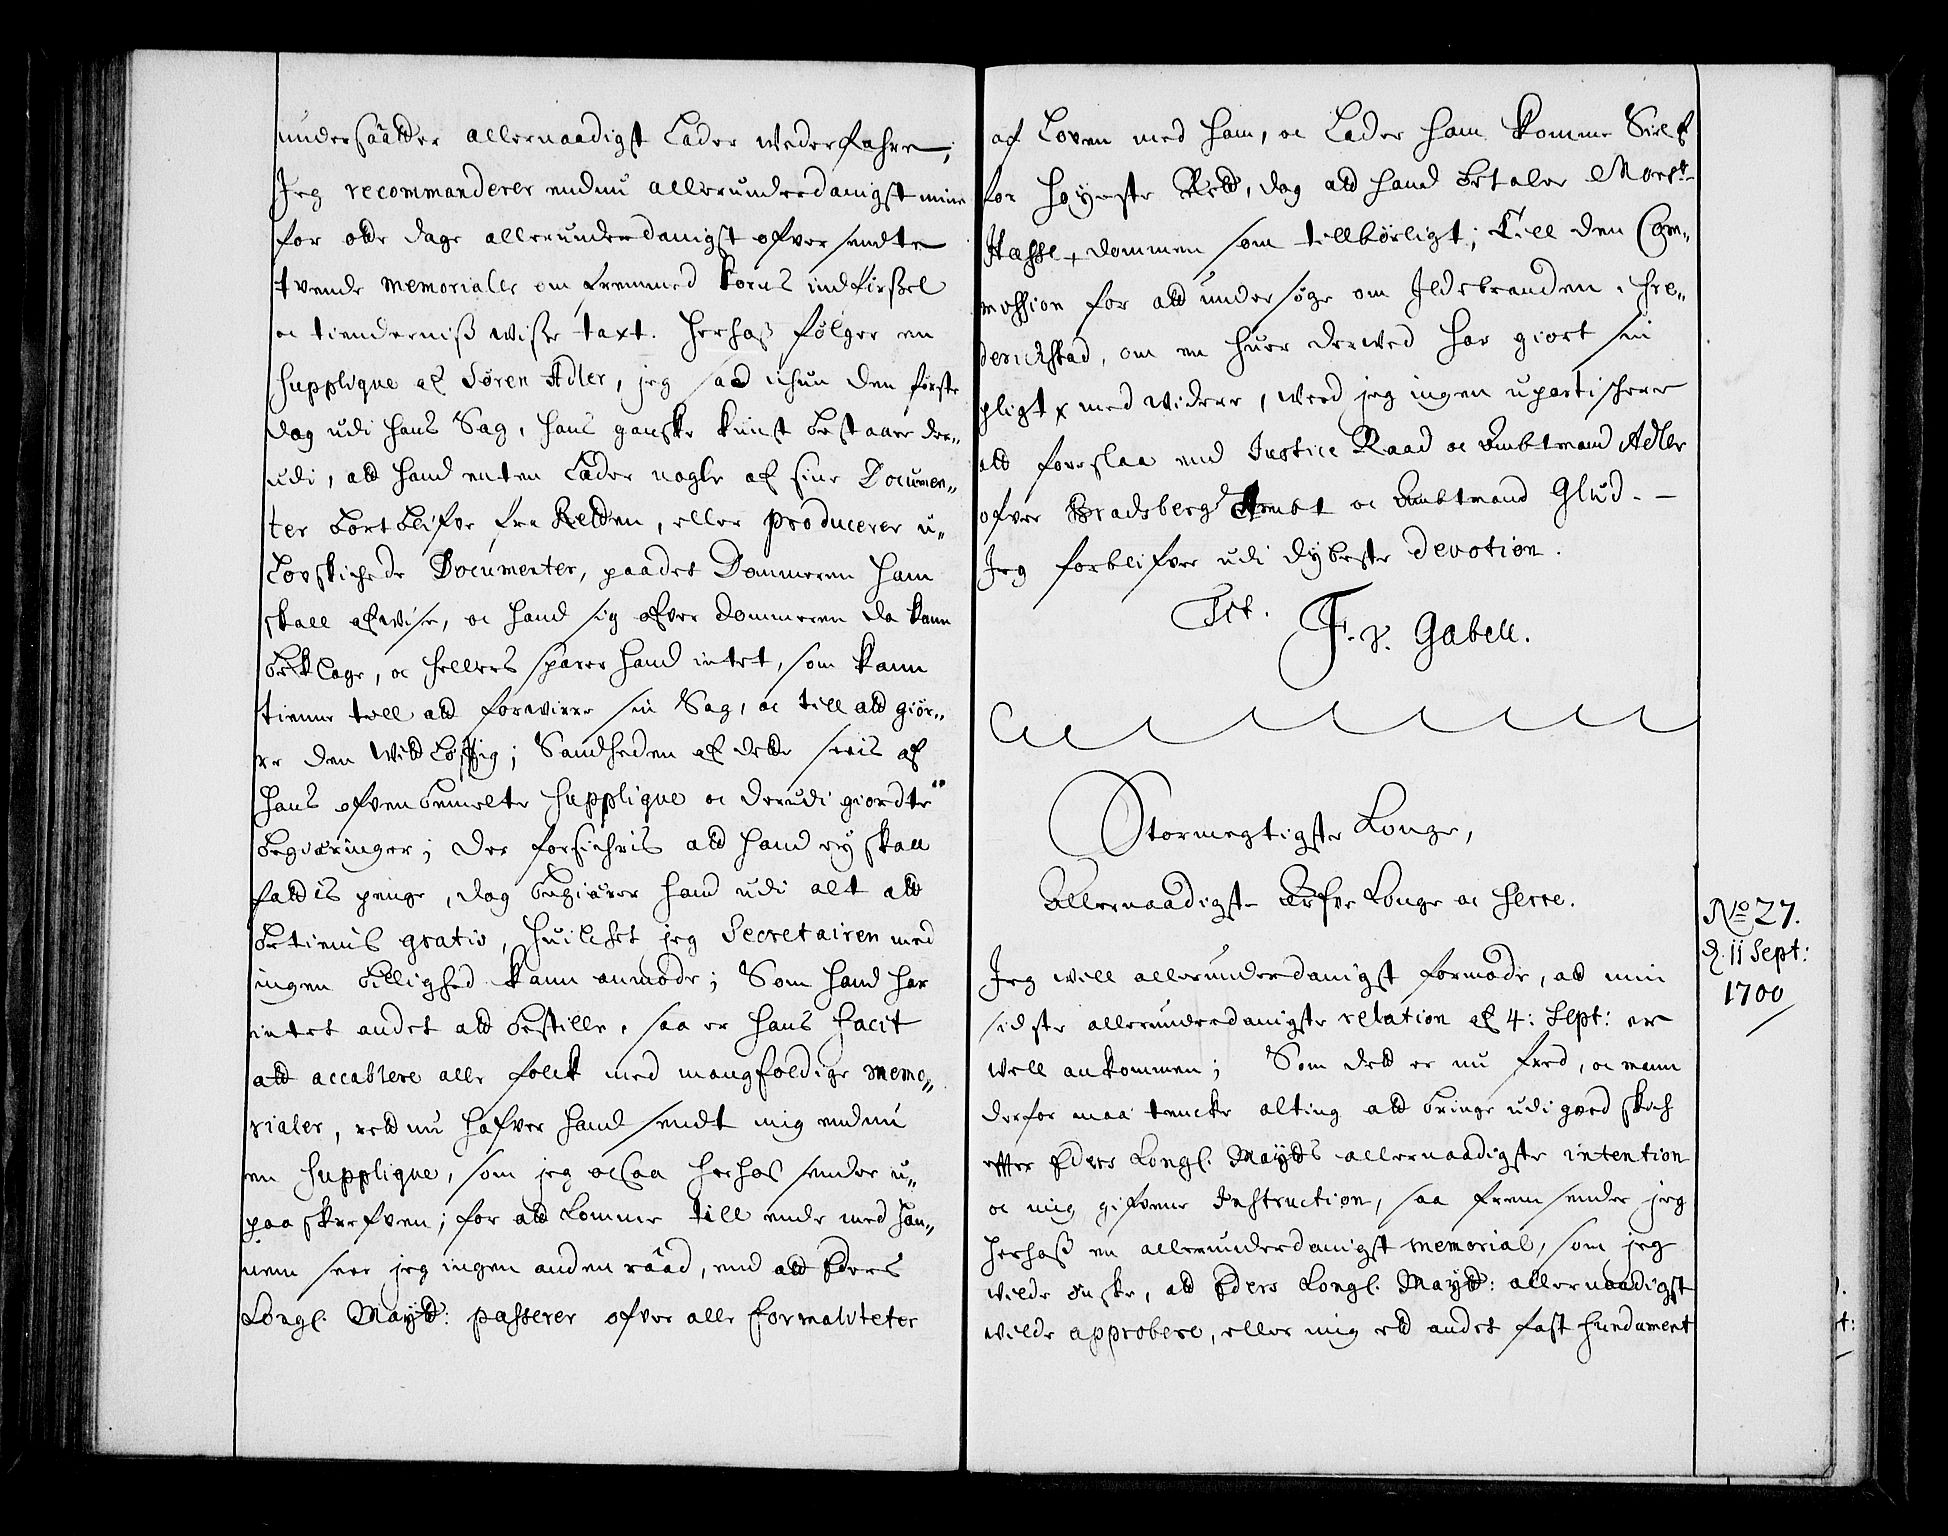 undersaatter allernaadigst Lader wederfahre,
Jeg recommanderer endnu allerunderdanigst mine
for otte dage allerunderdanigst ofversendte
tvende memorialer om fremmed korns indførsel
oc tienderniss wisse taxt. Herhoss følger en
Supplique af Søren Adler, jeg saa ichun den første
dag udi hans Sag, hans ganske kunst bestaaer der„
udi, att hand enten Lader nogle af sine Documen„
ter bortblifve fra Retten, eller producerer u„
Lovskichede Documenter, paadet Dommeren ham
skall afwise, oc hand sig ofver dommeren da kann
beklage, oc hellers sparer hand intet, som kann
tienne till att forwirre sin Sag, oc till att giør„
re den widtløfftig; Sandheden af dette seeis af
hans ofvenbemelte Supplique oc derudi giordte
begiæringer; der forsichris att hand ey skall
fattis penge, dog begiærer hand udi alt att
betienis gratis, huilchet jeg Secretairen med
ingen billighed kann anmode; Som hand har
intet andet att bestille, saa er hans facit
att accablere alle folck med mangfoldige memo„
rialer, rett nu hafver hand sendt mig endnu
en Supplique, som jeg ocsaa herhos sender u„
paaskrefven; for att komme till ende med han„
nem seer jeg ingen anden råad, end att Eders
Kongl. Maytt: passerer ofver alle formaliteter
af Loven med ham, oc Lader ham komme Sielf
for høyeste Rett, dog att hand betaler Morst
Hassel, dommen som tillbørligt; Till den Com„
mission for att undersøge om Ildebranden i Fre„
derichstad, om en huer derwed har giort sin
pligt med widere, weed jeg ingen upartischere
att foreslaa end Justice Raad oc Ambtmand Adler
ofver Bradsberg Ambt oc Ambtmand Glud. –
Jeg forblifver udi dybeste devotion.
Tit. F. v. Gabell.
Stormegtigste Konge,
Allernaadigste Arfve Konge oc Herre.
No 27.
d. 11 Sept:
1700
Jeg will allerunderdanigst formode, att min
sidste allerunderdanigste relation af 4: Sept: er
well ankommen; Som dett er nu fred, oc mann
derfor maa tencke alting att bringe udi goed skich
effter Eders Kongl. Maytts allernaadigste intention
oc mig gifvene Instruction, saa fremsender jeg
herhoss en allerunderdanigst memorial, som jeg
wilde ønske, att Eders Kongl. Maytt: allernaadigst
wilde approbere, eller mig ett andet fast fundament